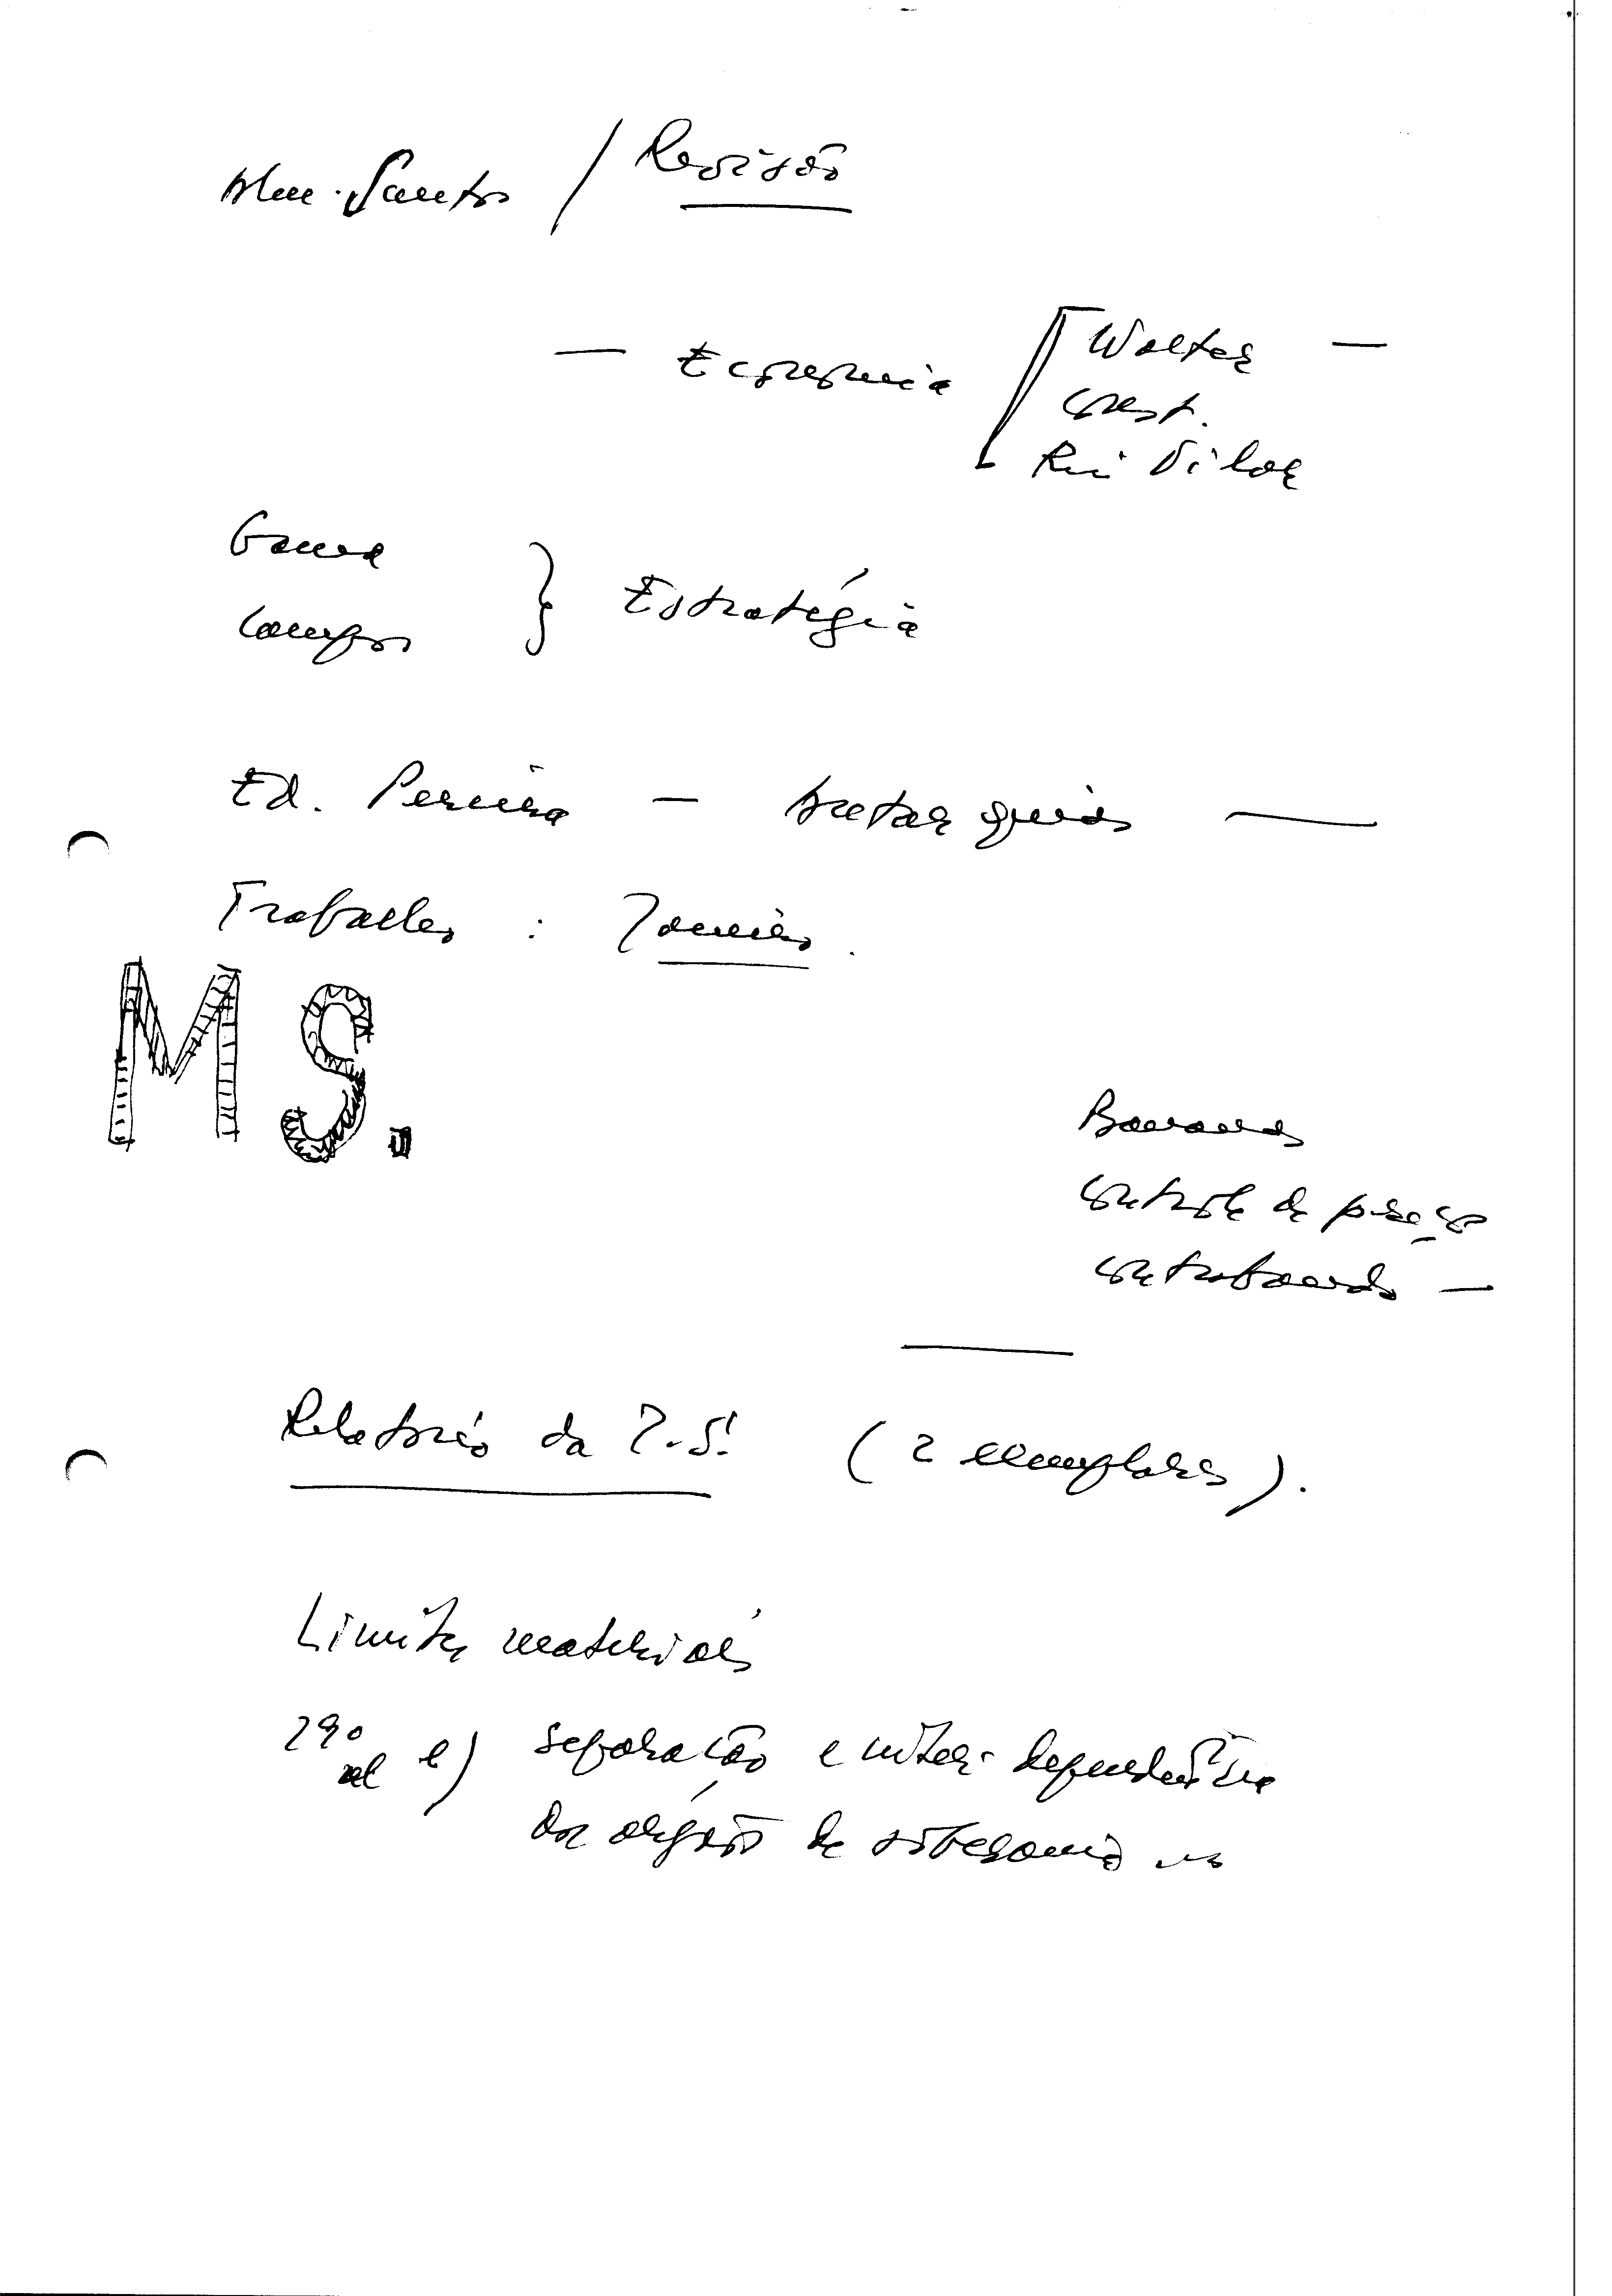 Alm. Santos / Revisão
— Economia Walter —
Const.
Rui Vilar
Gama
Campos } Estratégia
Ed. Pereira — autarquias —
Trabalho : Zenha.
MS.
Bananas
controle de preço
contrabando —
Relatório da I.S. (2 exemplares).
Limites materiais
290º al e) separação e interdependência
dos órgãos de soberania